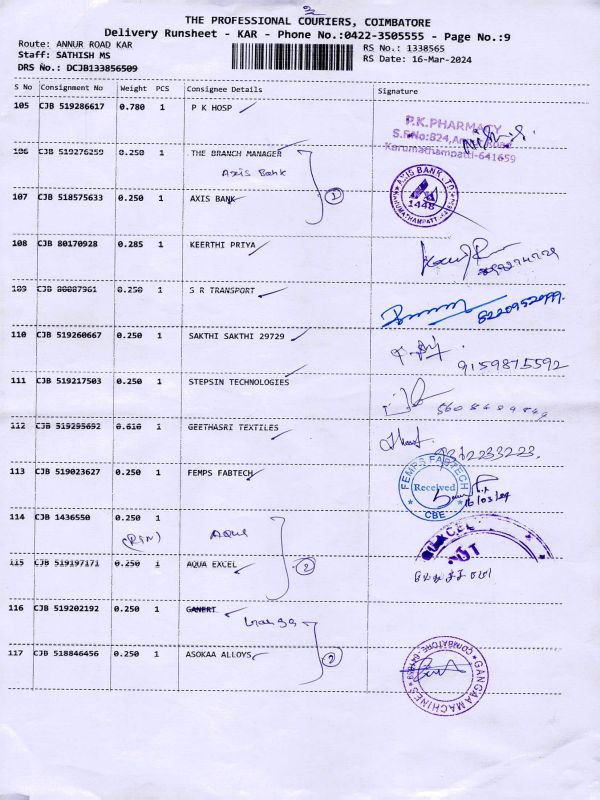 THE PROFESSIONAL COURIERS, COIMBATORE
Delivery Runsheet - KAR - Phone No.:0422-3505555 - Page No.:9
Route: ANNUR ROAD KAR
RS No.: 1338565
Staff: SATHISH MS
RS Date: 16-Mar-2024
DRS No.: DCJB133856509
S No Consignment No Weight PCS Consignee Details Signature
105 CJB 519286617 0.780 1 P K HOSP
P.K.PHARMACY
S.F.No:824,
Karumathampatti-641659
106 CJB 519276259 0.250 1 THE BRANCH MANAGER
Axis Bank
107 CJB 518575633 0.250 1 AXIS BANK
2
AXIS BANK LTD.
1448
108 CJB 80170928 0.285 1 KEERTHI PRIYA
109 CJB 80087961 0.250 1 S R TRANSPORT
110 CJB 519260667 0.250 1 SAKTHI SAKTHI 29729
9159875592
111 CJB 519217503 0.250 1 STEPSIN TECHNOLOGIES
112 CJB 519295692 0.610 1 GEETHASRI TEXTILES
113 CJB 519023627 0.250 1 FEMPS FABTECH
FEMPS FABTECH
Received
CBE
16/03/24
114 CJB 1436550 0.250 1
Aqua
115 CJB 519197171 0.250 1 AQUA EXCEL
2
116 CJB 519202192 0.250 1 GANERT
117 CJB 518846456 0.250 1 ASOKAA ALLOYS
2
GANGAA MACHINES
COIMBATORE - 641659